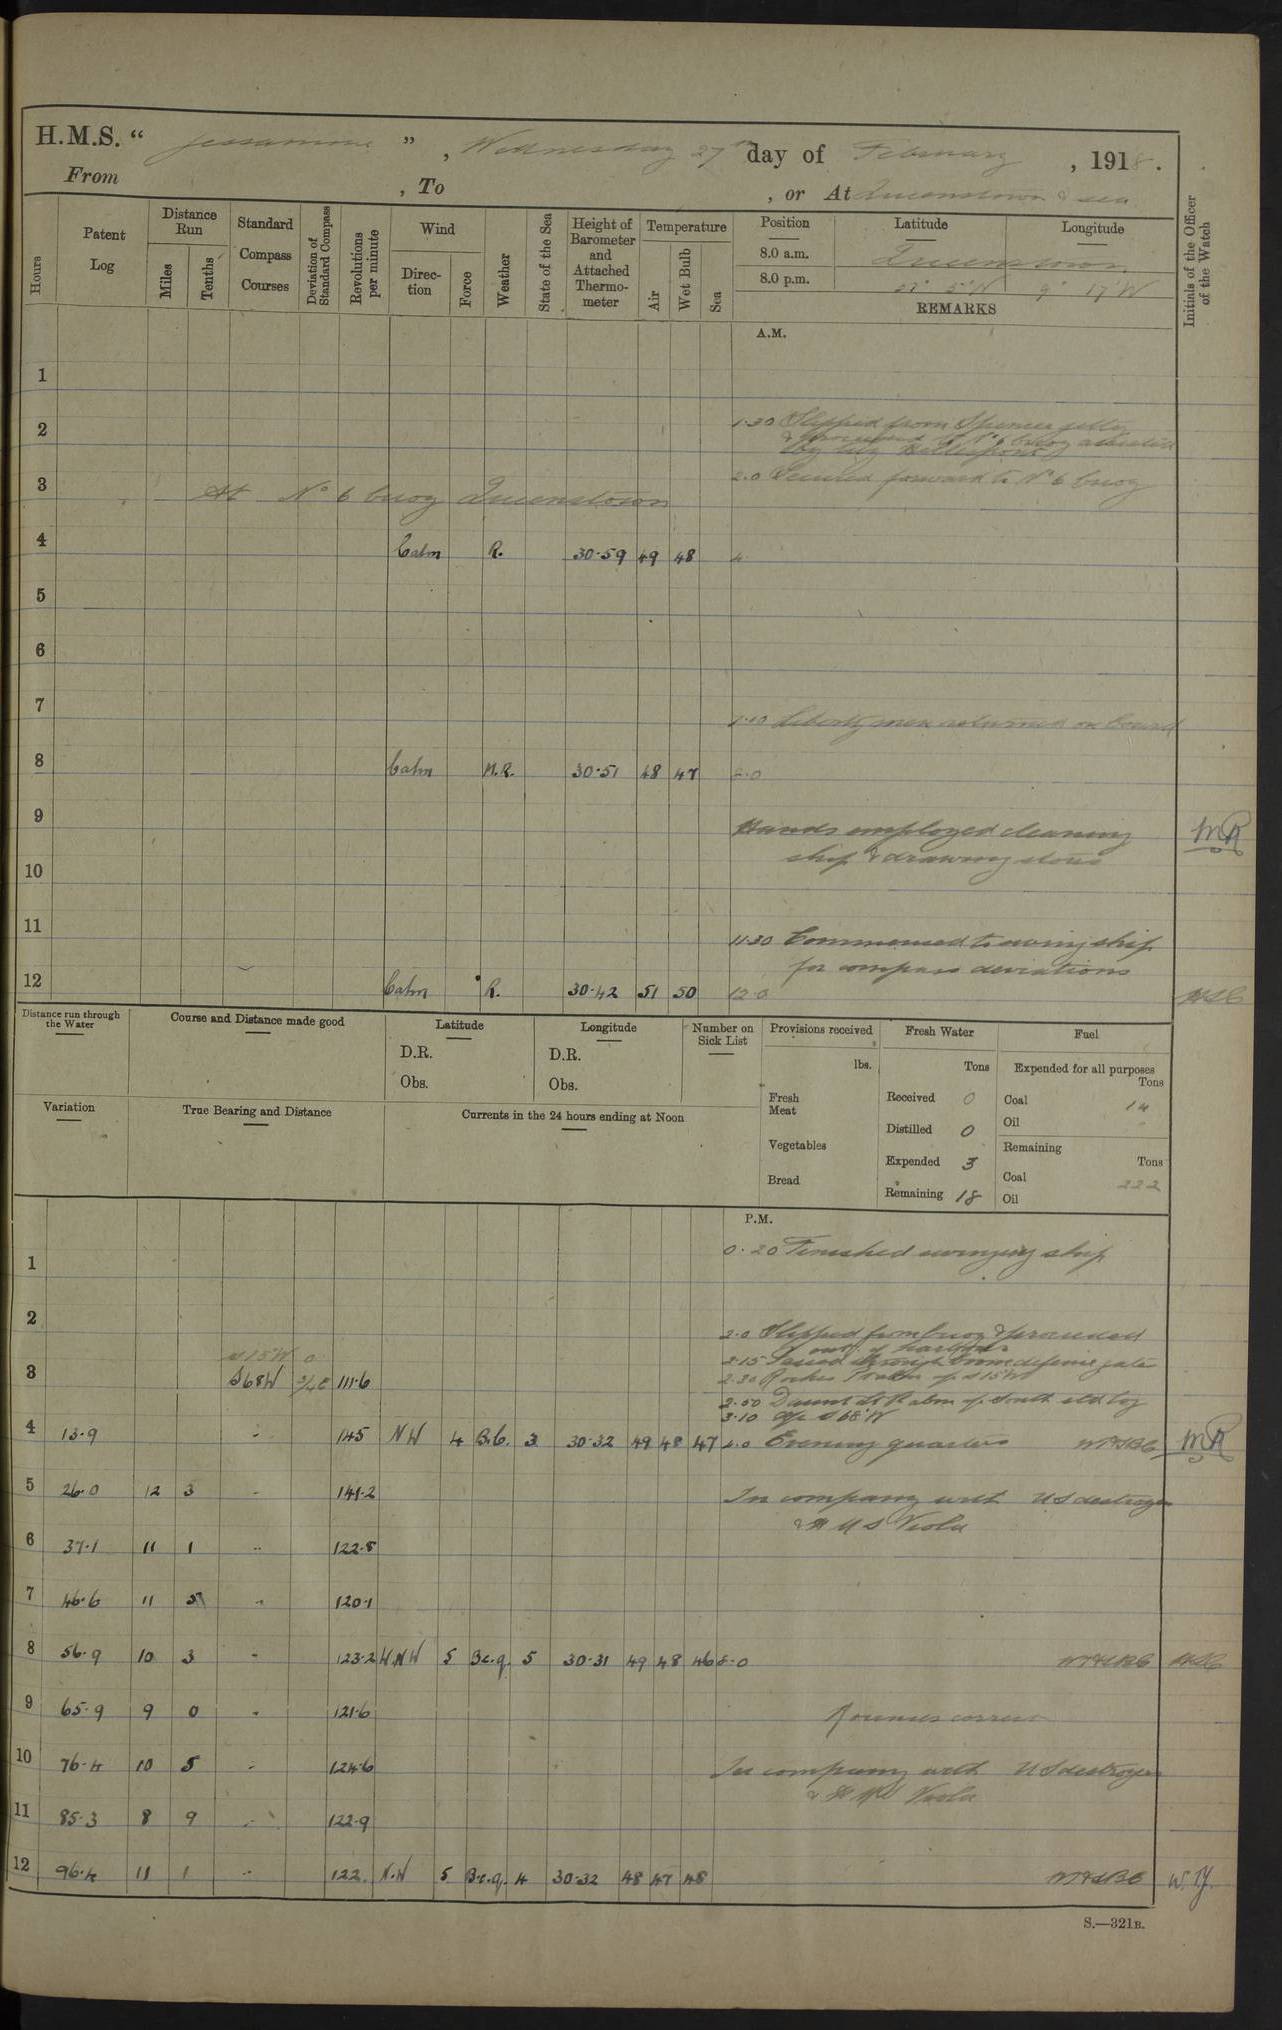 H.M.S. “ Jessamine ” , Wednesday 27th day of February , 1918 .
From , To , or At Queenstown & sea
Hours
Patent Log
Distance Run
Miles
Tenths
Standard Compass Courses
Deviation of Standard Compass
Revolutions per minute
Wind
Direction
Force
Weather
State of the Sea
Height of Barometer and Attached Thermometer
Temperature
Air
Wet Bulb
Sea
Position
Latitude
Longitude
8.0 a.m. Queenstown
8.0 p.m. 5' N 9° 17' W
REMARKS
Initials of the Officer of the Watch
A.M.
1
2 1.30 Slipped from Spencer jetty
& proceeded to No 6 buoy assisted
by tug Hellespont
2.0 Secured forward to No 6 buoy
3 At No 6 buoy Queenstown
4 Calm R. 30.59 49 48 4
5
6
7 7.10 Liberty men returned on board
8 Calm M.R. 30.51 48 47 8.0
9 Hands employed cleaning
ship & drawing stores MR
10
11 11.30 Commenced swinging ship
for compass deviations
12 Calm R. 30.42 51 50 12.0
Distance run through the Water
Course and Distance made good
Latitude
D.R.
Obs.
Longitude
D.R.
Obs.
Number on Sick List
Provisions received
lbs.
Fresh Meat
Vegetables
Bread
Fresh Water
Tons
Received 0
Distilled 0
Expended 3
Remaining 18
Fuel
Expended for all purposes
Tons
Coal 14
Oil
Remaining
Tons
Coal 222
Oil
Variation
True Bearing and Distance
Currents in the 24 hours ending at Noon
P.M.
0.20 Finished swinging ship
1
2 2.0 Slipped from buoy & proceeded
out of harbour
2.15 Passed through boom defence gate
S15W 0
3 S68W 3/4E 111.6 2.30 Roches Pt abm S15W
2.50 Daunt Lt V abm South
3.10 a/c S68W
4 13.9 " 145 NW 4 B.C. 3 30.32 49 48 47 4.0 Evening quarters MR
5 26.0 12 3 " 141.2 In company with US destroyer
& HMS Viola
6 37.1 11 1 " 122.8
7 46.6 11 5 " 120.1
8 56.9 10 3 " 123.2 WNW 5 B.c.q. 5 30.31 49 48 46 8.0
9 65.9 9 0 " 121.6 Rounds correct
10 76.4 10 5 " 124.6 In company with US destroyer
& HMS Viola
11 85.3 8 9 " 122.9
12 96.4 11 1 " 122 N.W 5 B.c.q. 4 30.32 48 47 48
S.—321B.